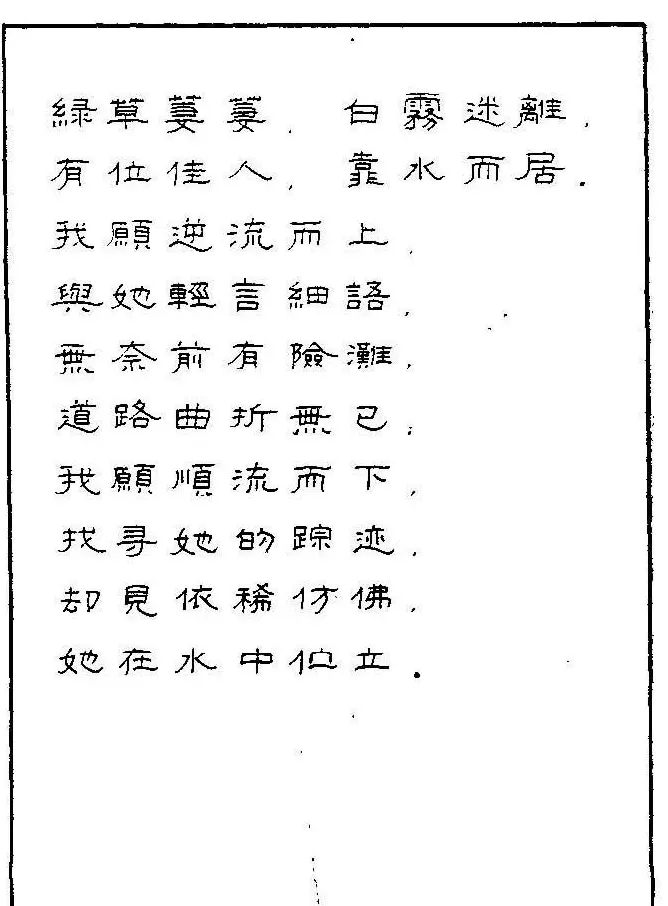 綠草萋萋，白霧迷離，
有位佳人，靠水而居．
我願逆流而上，
與她輕言細語，
無奈前有險灘，
道路曲折無已；
我願順流而下，
找尋她的踪迹，
却見依稀仿佛，
她在水中伫立．